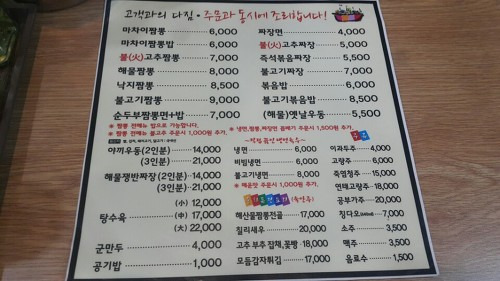 고객과의 다짐 · 주문과 동시에 조리합니다!
마차이짬뽕 6,000
마차이짬뽕밥 6,000
불(火)고추짬뽕 7,000
해물짬뽕 8,000
낙지짬뽕 8,500
불고기짬뽕 9,000
순두부짬뽕면+밥 7,000
* 짬뽕 전메뉴 밥으로 가능합니다.
* 짬뽕 전메뉴 불고추 주문시 1,000원 추가.
야끼우동(2인분) 14,000
(3인분) 21,000
해물쟁반짜장(2인분) 14,000
(3인분) 21,000
탕수육
(小) 12,000
(中) 17,000
(大) 22,000
군만두 4,000
공기밥 1,000
짜장면 4,000
불(火)고추짜장 5,000
즉석볶음짜장 5,500
불고기짜장 7,000
볶음밥 6,000
불고기볶음밥 8,500
(해물)옛날우동 5,500
* 냉면,짬뽕,짜장면 곱빼기 주문시 1,500원 추가.
냉면 6,000
비빔냉면 6,000
불고기냉면 8,000
* 매운맛 주문시 1,000원 추가.
해산물짬뽕전골 17,000
칠리새우 20,000
고추 부추 잡채,꽃빵 18,000
모듬감자튀김 17,000
이과두주 4,000
고량주 6,000
죽엽청주 15,000
연태고량주 18,000
공부가주 20,000
칭다오 7,000
소주 3,500
맥주 3,500
음료수 1,500